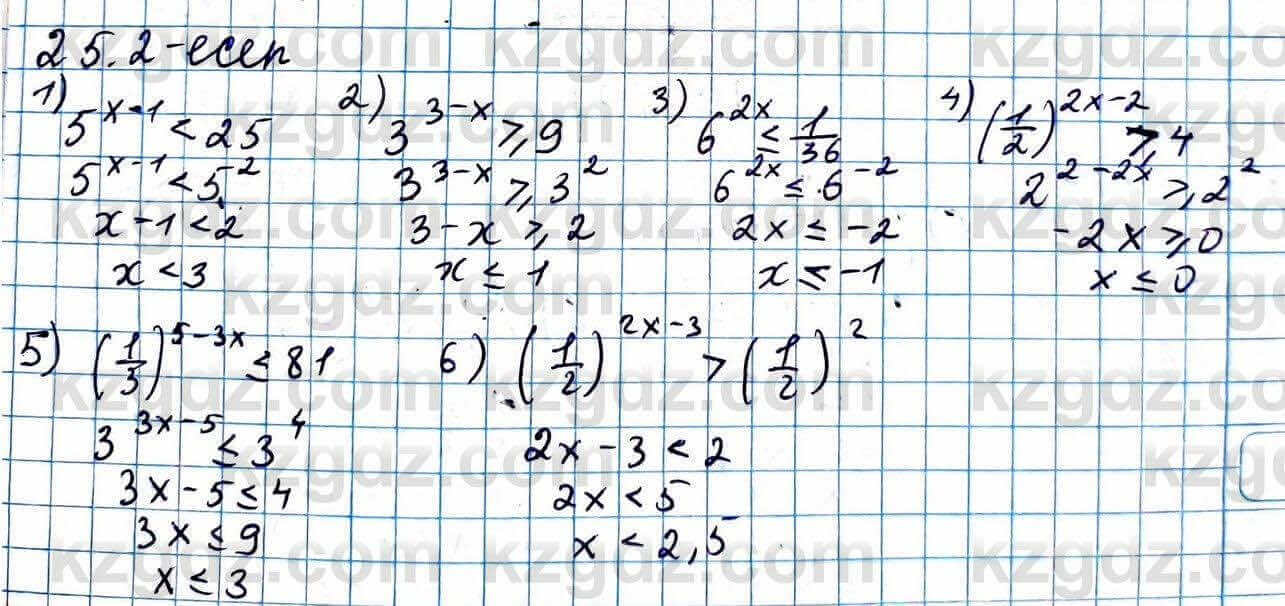 25.2-есеп
1) 5^{x-1} < 25
5^{x-1} < 5^{2}
x-1 < 2
x < 3
2) 3^{3-x} ≥ 9
3^{3-x} ≥ 3^{2}
3-x ≥ 2
x ≤ 1
3) 6^{2x} ≤ 1/36
6^{2x} ≤ 6^{-2}
2x ≤ -2
x ≤ -1
4) (1/2)^{2x-2} ≥ 4
2^{2-2x} ≥ 2^{2}
-2x ≥ 0
x ≤ 0
5) (1/3)^{5-3x} ≤ 81
3^{3x-5} ≤ 3^{4}
3x-5 ≤ 4
3x ≤ 9
x ≤ 3
6) (1/2)^{2x-3} > (1/2)^{2}
2x-3 < 2
2x < 5
x < 2,5
kzgdz.com